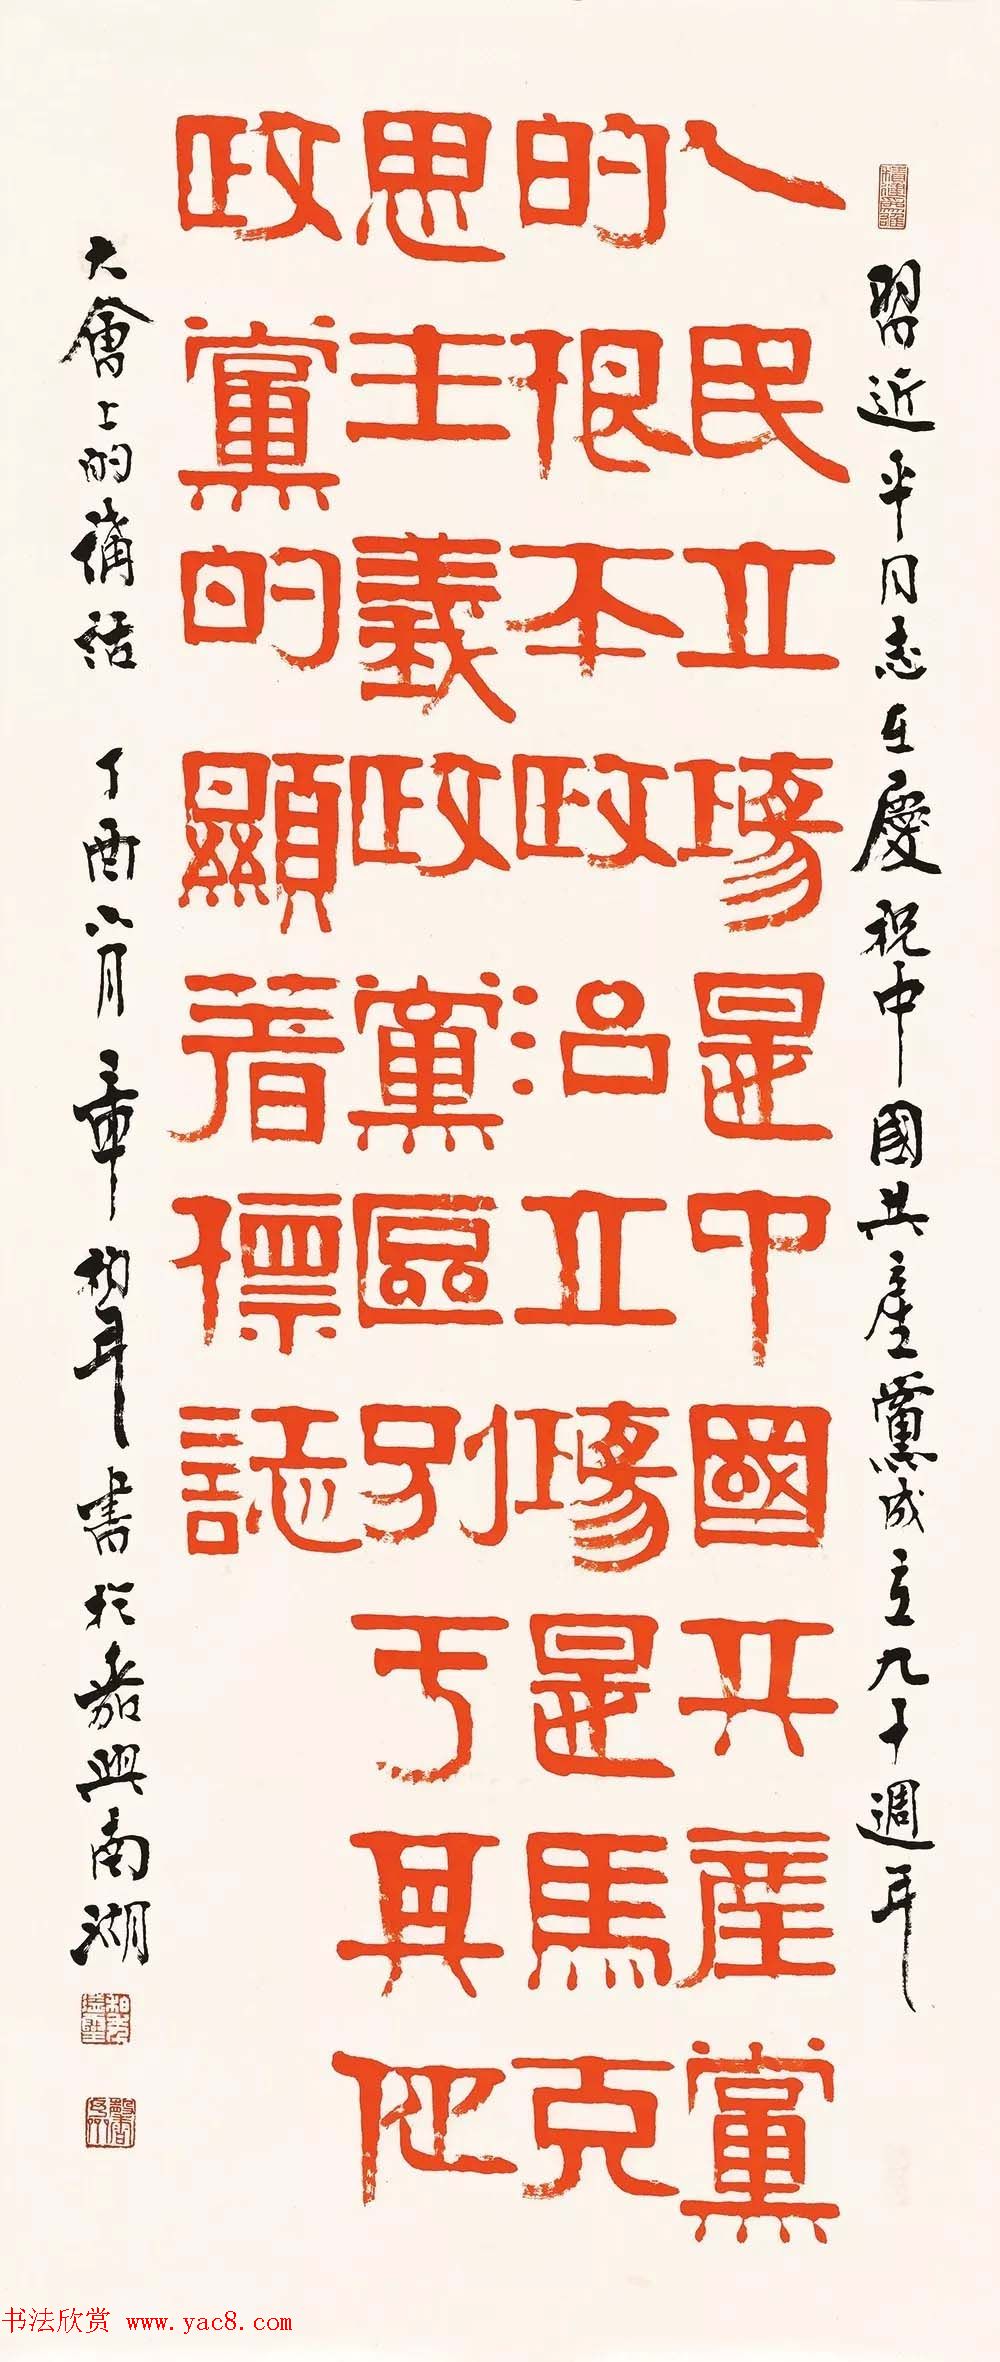 習近平同志在慶祝中國共產黨成立九十週年
人民立場是中國共產黨
的根本政治立場是馬克
思主義政黨區別于其他
政黨的顯著標誌
大會上的講話 丁酉八月 章柏年書於嘉興南湖
书法欣赏 www.yac8.com